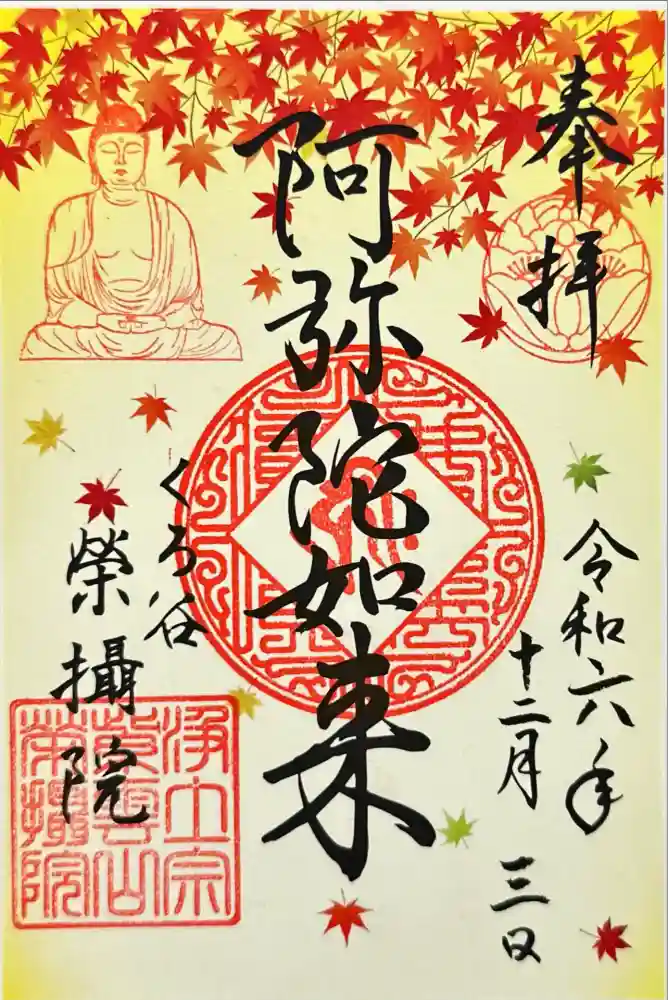 奉拝
令和六年
十二月 三日
阿弥陀如来
くろ谷
榮攝院
浄土宗
紫雲山
榮攝院